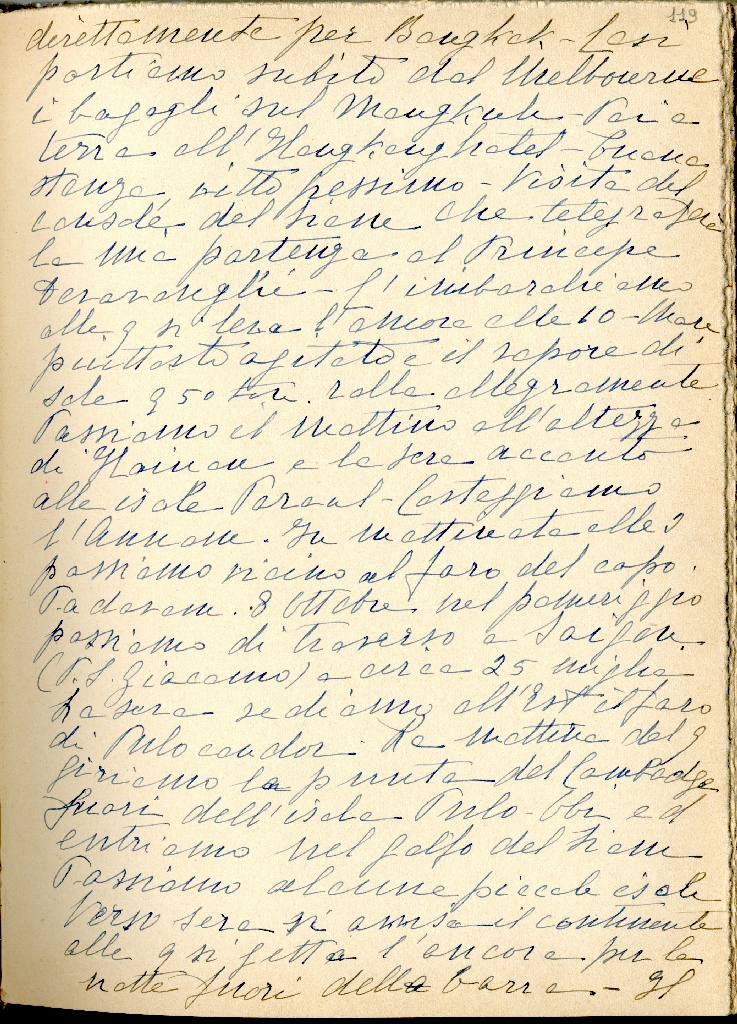 119
direttamente per Bangkok - Così
portiamo subito dal Melbourne
i bagagli sul Mongkut - Poi a
terra all'Hongkonghotel - buona
stanza vitto pessimo - Visita del
console del Siam che telegrafa
la mia partenza al Principe
- C'imbarchiamo
alle 9 si leva l'ancora alle 10 - Mare
piuttosto agitato e il vapore di
sole 950 tonn. rolla allegramente
Passiamo il mattino all'altezza
di Hainan e la sera accanto
alle isole Paraul - Costeggiamo
l'Annam. In mattinata alle
passiamo vicino al faro del capo
Padaran. 8 Ottobre nel pomeriggio
passiamo di traverso a Saigon
(P. S. Giacomo) a circa 25 miglia
La sera vediamo all'Est il faro
di Pulo condor. La mattina del 9
giriamo la punta del Cambodge
fuori dell'isola Pulo-Obi ed
entriamo nel golfo del Siam
Passiamo alcune piccole isole
Verso sera si avvisa il continente
alle 9 si getta l'ancora per la
notte fuori della barra - Il